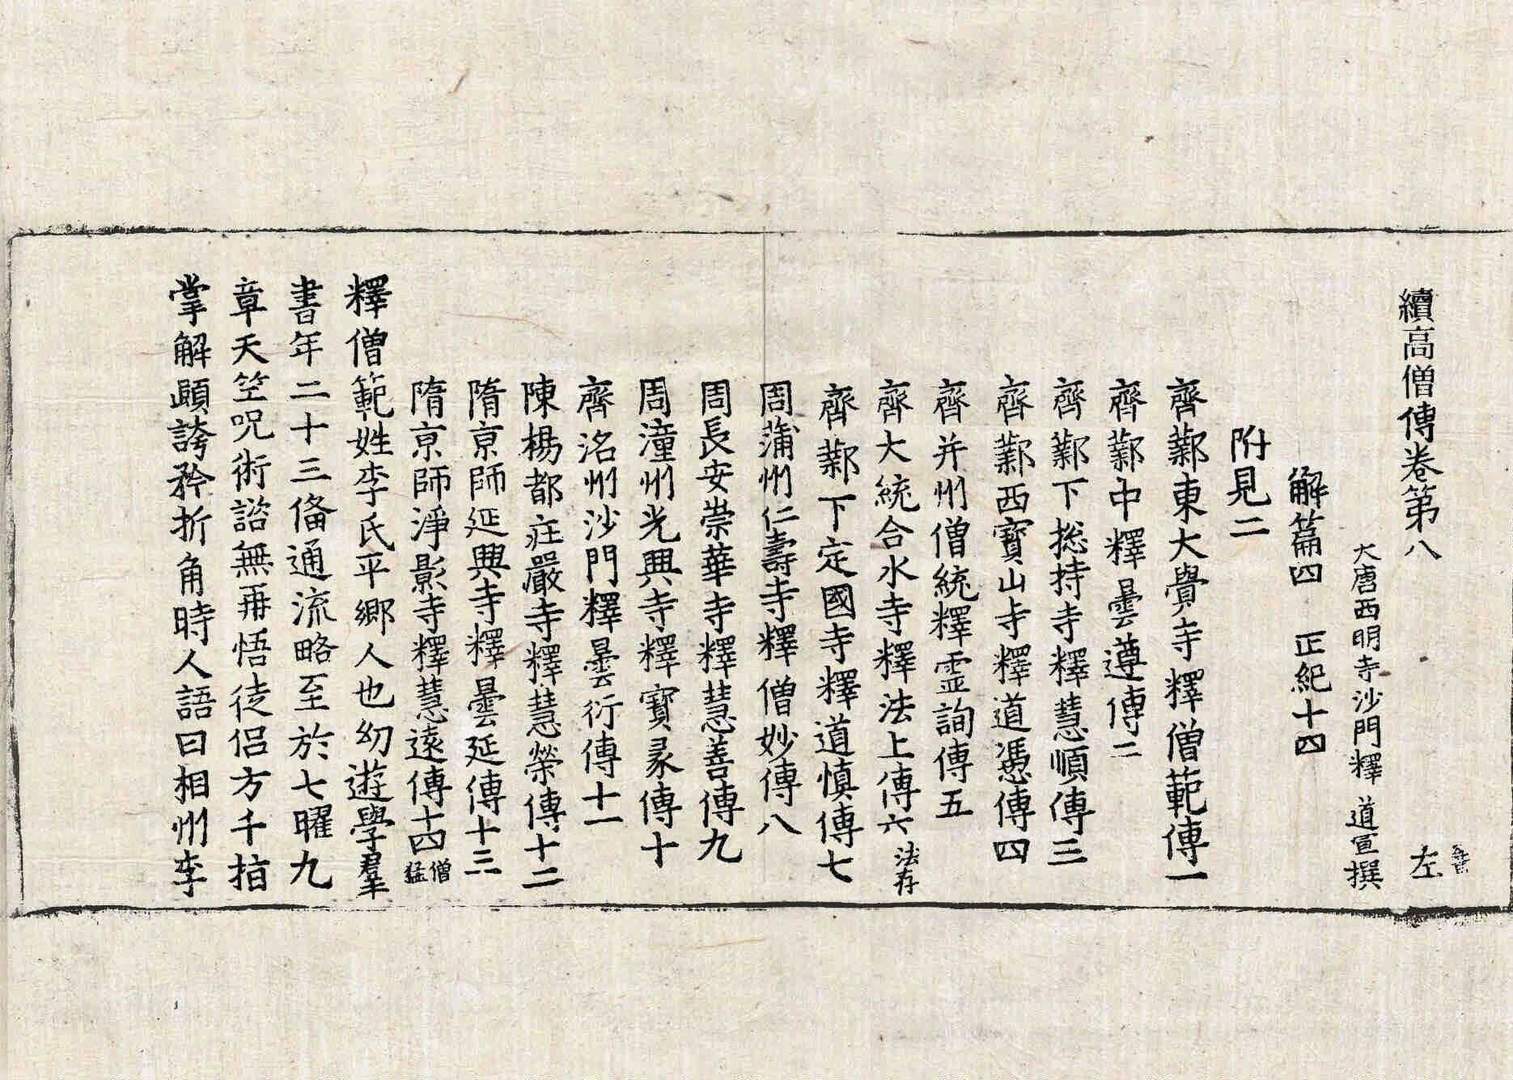 續高僧傳卷第八　左
大唐西明寺沙門釋道宣撰
解篇四　正紀十四
附見二
齊鄴東大覺寺釋僧範傳一
齊鄴中釋曇遵傳二
齊鄴下揔持寺釋慧順傳三
齊鄴西寶山寺釋道憑傳四
齊并州僧統釋靈詢傳五
齊大統合水寺釋法上傳六 法存
齊鄴下定國寺釋道慎傳七
周蒲州仁壽寺釋僧妙傳八
周長安崇華寺釋慧善傳九
周潼州光興寺釋寶彖傳十
齊洺州沙門釋曇衍傳十一
陳楊都莊嚴寺釋慧榮傳十二
隋京師延興寺釋曇延傳十三
隋京師淨影寺釋慧遠傳十四 僧猛
釋僧範姓李氏平鄉人也幼遊學羣
書年二十三俻通流略至於七曜九
章天竺呪術諮無再悟徒侣方千指
掌解頤誇矜折角時人語曰相州李